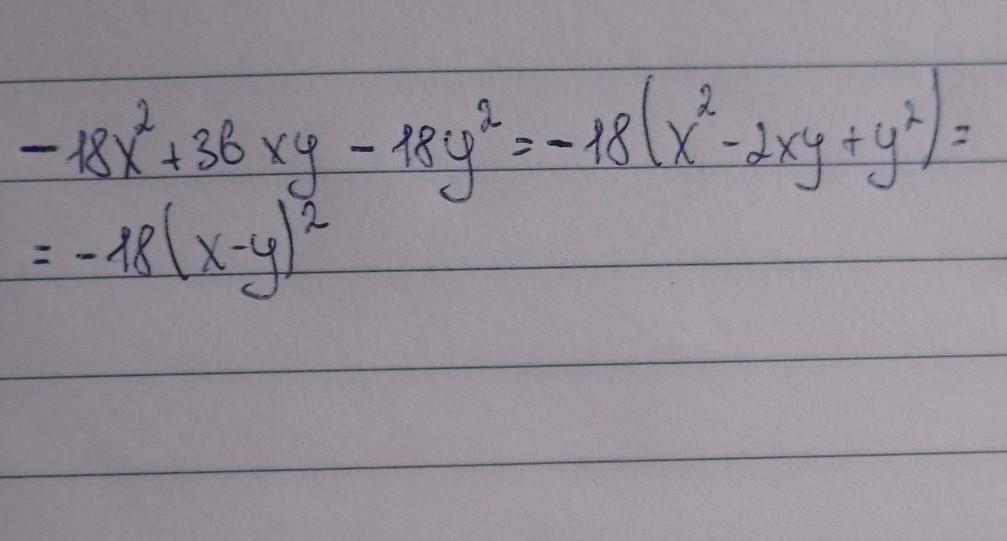 -18x²+36xy-18y²=-18(x²-2xy+y²)=
=-18(x-y)²